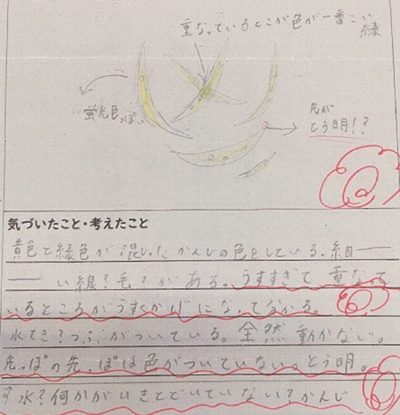 重なっているところが色が一番こい
緑
蛍光色っぽい
先が
とう明!?
気づいたこと・考えたこと
黄色と緑色が混じったかんじの色をしている。細ー
ーい線?毛?がある。うすすぎて重なって
いるところがうすくかげになって分かる。
水てき?つぶがついている。全然動かない。
先っぽの先っぽは色がついていない。とう明。
水?何かがいきとどいていない?かんじ